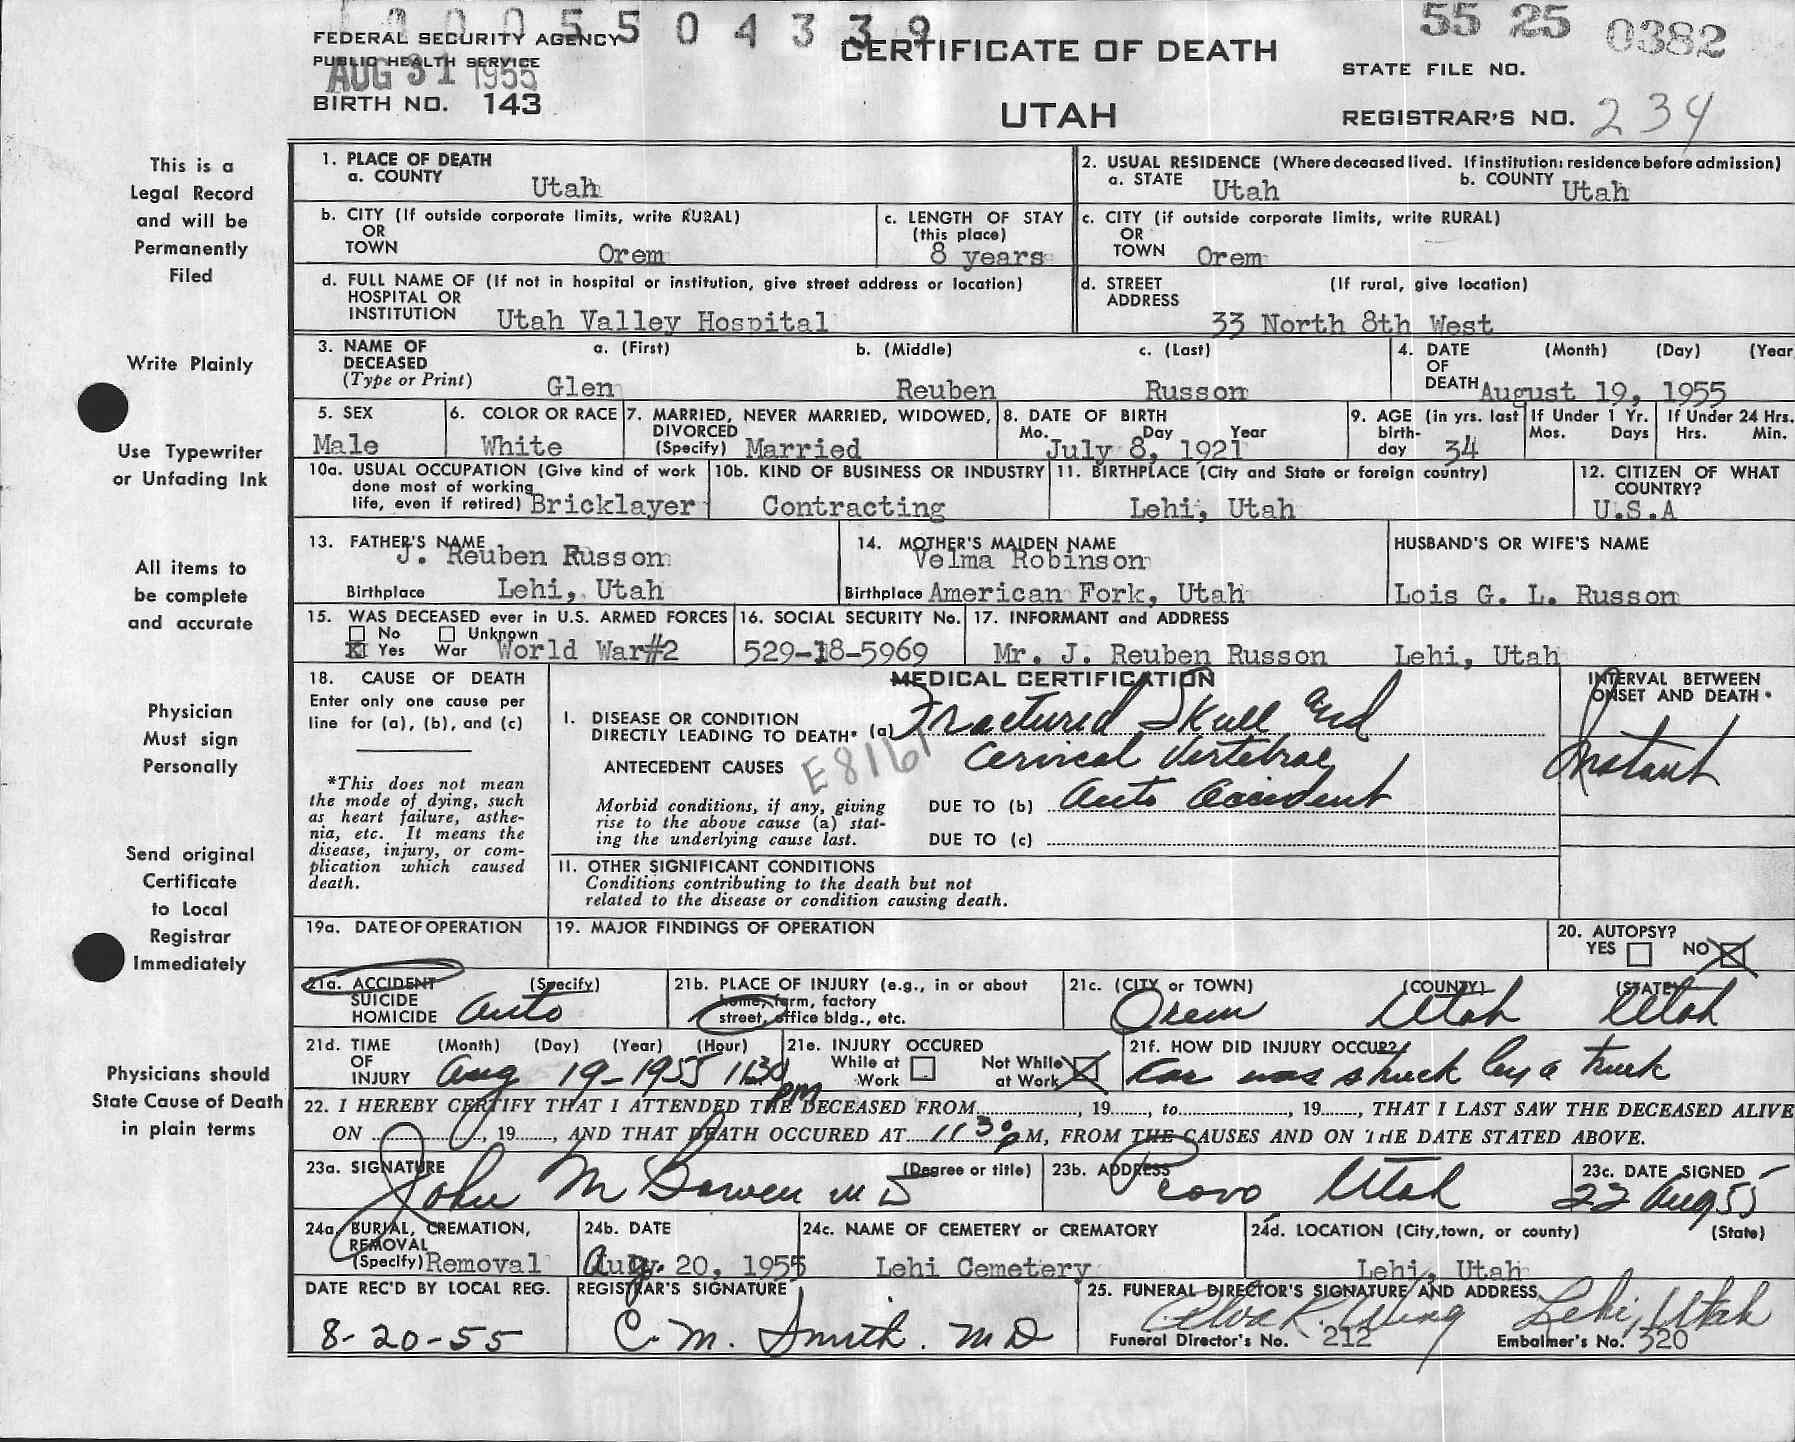 0005504339
55 25 0382
FEDERAL SECURITY AGENCY
PUBLIC HEALTH SERVICE
AUG 31 1955
BIRTH NO. 143
CERTIFICATE OF DEATH
UTAH
STATE FILE NO.
REGISTRAR'S NO. 234
This is a
Legal Record
and will be
Permanently
Filed
Write Plainly
Use Typewriter
or Unfading Ink
All items to
be complete
and accurate
Physician
Must sign
Personally
Send original
Certificate
to Local
Registrar
Immediately
Physicians should
State Cause of Death
in plain terms
1. PLACE OF DEATH
a. COUNTY Utah
2. USUAL RESIDENCE (Where deceased lived. If institution: residence before admission)
a. STATE Utah b. COUNTY Utah
b. CITY (If outside corporate limits, write RURAL)
OR
TOWN Orem
c. LENGTH OF STAY
(this place)
8 years
c. CITY (if outside corporate limits, write RURAL)
OR
TOWN Orem
d. FULL NAME OF (If not in hospital or institution, give street address or location)
HOSPITAL OR
INSTITUTION Utah Valley Hospital
d. STREET (If rural, give location)
ADDRESS
33 North 8th West
3. NAME OF a. (First) b. (Middle) c. (Last)
DECEASED
(Type or Print) Glen Reuben Russon
4. DATE (Month) (Day) (Year
OF
DEATH August 19, 1955
5. SEX
Male
6. COLOR OR RACE
White
7. MARRIED, NEVER MARRIED, WIDOWED,
DIVORCED
(Specify) Married
8. DATE OF BIRTH
Mo. Day Year
July 8, 1921
9. AGE (in yrs. last
birth-
day 34
If Under 1 Yr.
Mos. Days
If Under 24 Hrs.
Hrs. Min.
10a. USUAL OCCUPATION (Give kind of work
done most of working
life, even if retired) Bricklayer
10b. KIND OF BUSINESS OR INDUSTRY
Contracting
11. BIRTHPLACE (City and State or foreign country)
Lehi, Utah
12. CITIZEN OF WHAT
COUNTRY?
U.S.A
13. FATHER'S NAME
J. Reuben Russon
Birthplace Lehi, Utah
14. MOTHER'S MAIDEN NAME
Velma Robinson
Birthplace American Fork, Utah
HUSBAND'S OR WIFE'S NAME
Lois G. L. Russon
15. WAS DECEASED ever in U.S. ARMED FORCES
No Unknown
X Yes War World War#2
16. SOCIAL SECURITY No.
529-18-5969
17. INFORMANT and ADDRESS
Mr. J. Reuben Russon Lehi, Utah
18. CAUSE OF DEATH
Enter only one cause per
line for (a), (b), and (c)
*This does not mean
the mode of dying, such
as heart failure, asthe-
nia, etc. It means the
disease, injury, or com-
plication which caused
death.
MEDICAL CERTIFICATION
I. DISEASE OR CONDITION
DIRECTLY LEADING TO DEATH* (a) Fractured Skull and
Cervical Vertebrae
ANTECEDENT CAUSES E8161
Morbid conditions, if any, giving
rise to the above cause (a) stat-
ing the underlying cause last.
DUE TO (b) Auto Accident
DUE TO (c)
INTERVAL BETWEEN
ONSET AND DEATH*
Instant
11. OTHER SIGNIFICANT CONDITIONS
Conditions contributing to the death but not
related to the disease or condition causing death.
19a. DATE OF OPERATION
19. MAJOR FINDINGS OF OPERATION
20. AUTOPSY?
YES NO X
21a. ACCIDENT (Specify)
SUICIDE
HOMICIDE Auto
21b. PLACE OF INJURY (e.g., in or about
home, farm, factory
street, office bldg., etc.
21c. (CITY or TOWN) (COUNTY) (STATE)
Orem Utah Utah
21d. TIME (Month) (Day) (Year) (Hour)
OF
INJURY Aug 19-1955 1130 PM
21e. INJURY OCCURED
While at
Work
Not While
at Work X
21f. HOW DID INJURY OCCUR?
Car was struck by a truck
22. I HEREBY CERTIFY THAT I ATTENDED THE DECEASED FROM , 19 , to , 19 , THAT I LAST SAW THE DECEASED ALIVE
ON , 19 , AND THAT DEATH OCCURED AT 1130 P M, FROM THE CAUSES AND ON THE DATE STATED ABOVE.
23a. SIGNATURE (Degree or title)
John M Bowen MD
23b. ADDRESS
Provo Utah
23c. DATE SIGNED
22 Aug 55
24a. BURIAL, CREMATION,
REMOVAL
(Specify) Removal
24b. DATE
Aug. 20, 1955
24c. NAME OF CEMETERY or CREMATORY
Lehi Cemetery
24d. LOCATION (City, town, or county) (State)
Lehi, Utah
DATE REC'D BY LOCAL REG.
8-20-55
REGISTRAR'S SIGNATURE
C. M. Smith. MD
25. FUNERAL DIRECTOR'S SIGNATURE AND ADDRESS
Wing Lehi, Utah
Funeral Director's No. 212 Embalmer's No. 320